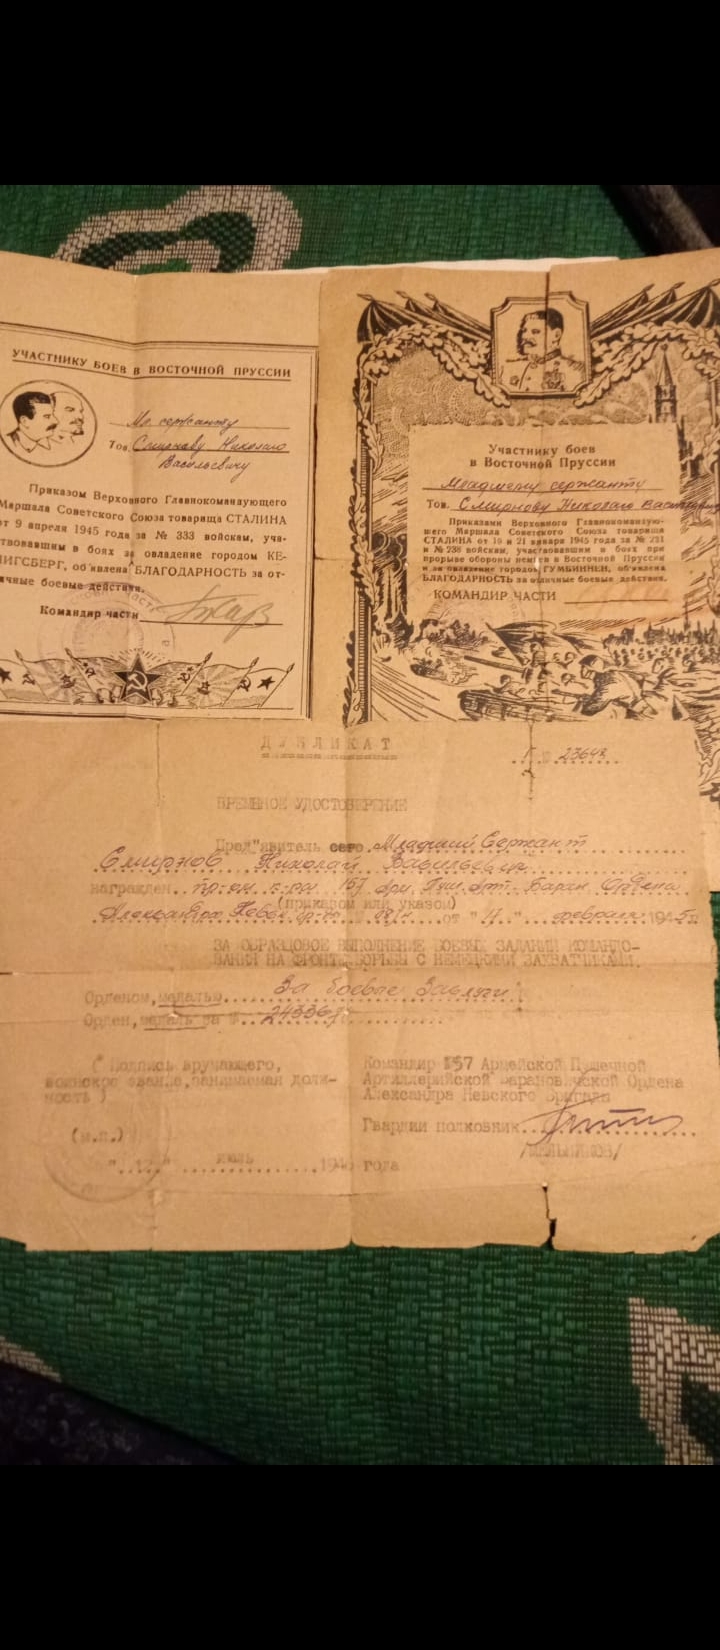 УЧАСТНИКУ БОЕВ В ВОСТОЧНОЙ ПРУССИИ
Мл. сержанту
Тов. Смирнову Николаю
Васильевичу
Приказом Верховного Главнокомандующего
Маршала Советского Союза товарища СТАЛИНА
от 9 апреля 1945 года за № 333 войскам, уча-
ствовавшим в боях за овладение городом КЕ-
НИГСБЕРГ, об'явлена БЛАГОДАРНОСТЬ за от-
ичные боевые действия.
Командир части
Участнику боев
в Восточной Пруссии
Младшему сержанту
Тов. Смирнову Николаю Васильевичу
Приказами Верховного Главнокомандую-
щего Маршала Советского Союза товарища
СТАЛИНА от 19 и 21 января 1945 года за № 231
и № 238 войскам, участвовавшим в боях при
прорыве обороны немцев в Восточной Пруссии
и за овладение городом ГУМБИННЕН, об'явлена
БЛАГОДАРНОСТЬ за отличные боевые действия.
КОМАНДИР ЧАСТИ
ДУБЛИКАТ
23643
ВРЕМЕННОЕ УДОСТОВЕРЕНИЕ
Пред"явитель сего Младший Сержант
Смирнов Николай Васильевич
награжден 157 Арм. Пуш. Арт. Баран. Ордена
(приказом или указом)
Александра Невск. бр-ды № 08/н от "17" февраля 1945г
ЗА ОБРАЗЦОВОЕ ВЫПОЛНЕНИЕ БОЕВЫХ ЗАДАНИЙ КОМАНДО-
ВАНИЯ НА ФРОНТЕ БОРЬБЫ С НЕМЕЦКИМИ ЗАХВАТЧИКАМИ.
Орденом, медалью За боевые Заслуги
Орден, медаль за №
(Подпись вручающего,
воинское звание, занимаемая долж-
ность)
Командир 157 Армейской Пушечной
Артиллерийской Барановичской Ордена
Александра Невского Бригады
Гвардии полковник
/МЕЛЬНИКОВ/
(м.п.)
июль 194 года